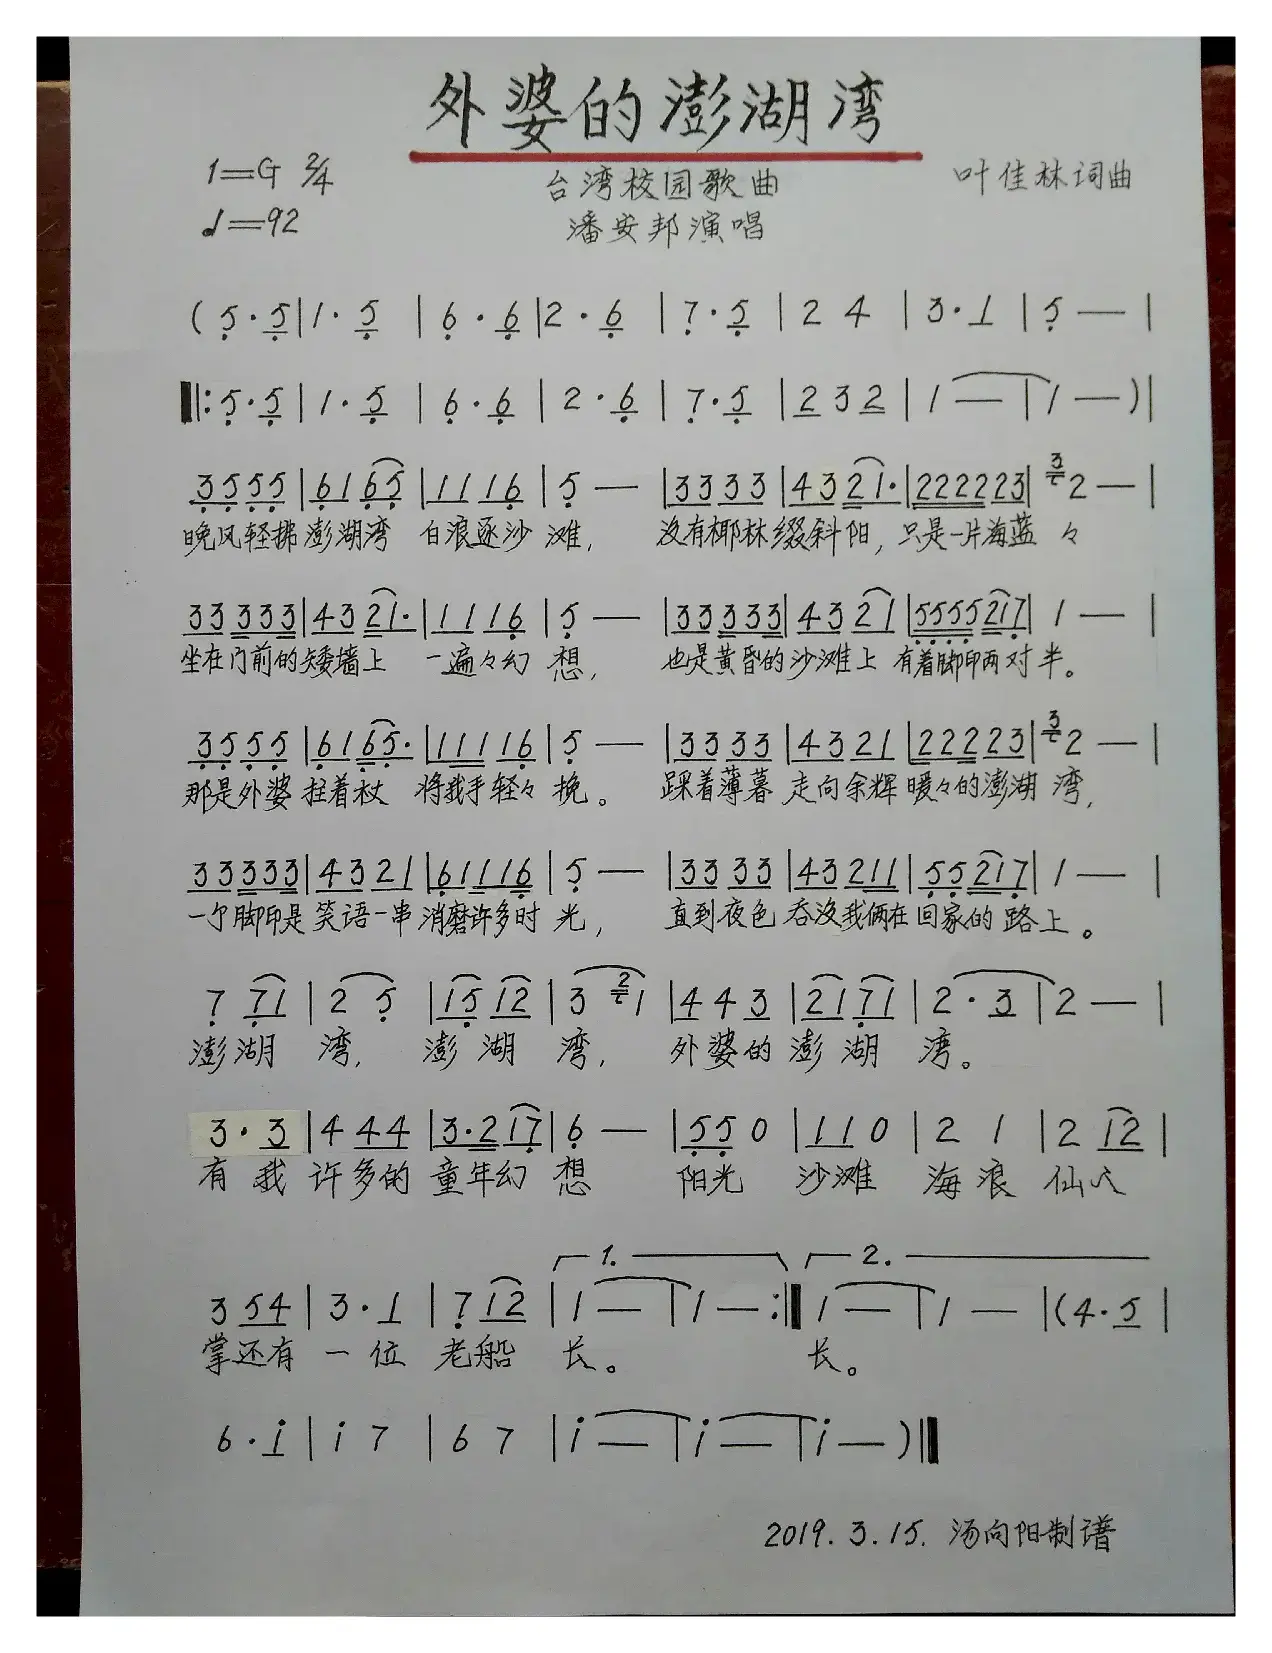 外婆的澎湖湾
1=G 2/4 台湾校园歌曲 叶佳林词曲
♩=92 潘安邦演唱
( 5·5 | 1·5 | 6·6 | 2·6 | 7·5 | 2 4 | 3·1 | 5 — |
‖: 5·5 | 1·5 | 6·6 | 2·6 | 7·5 | 2 3 2 | 1 — | 1 — ) |
3 5 5 5 | 6 1 6 5 | 1 1 1 6 | 5 — | 3 3 3 3 | 4 3 2 1· | 2 2 2 2 2 3 | 3 2 — |
晚风轻拂澎湖湾 白浪逐沙滩, 没有椰林缀斜阳, 只是一片海蓝々
3 3 3 3 3 | 4 3 2 1· | 1 1 1 6 | 5 — | 3 3 3 3 3 | 4 3 2 1 | 5 5 5 5 2 1 7 | 1 — |
坐在门前的矮墙上 一遍々幻想, 也是黄昏的沙滩上 有着脚印两对半。
3 5 5 5 | 6 1 6 5· | 1 1 1 1 6 | 5 — | 3 3 3 3 | 4 3 2 1 | 2 2 2 2 3 | 3 2 — |
那是外婆拄着杖 将我手轻々挽。 踩着薄暮走向余辉暖々的澎湖湾,
3 3 3 3 3 | 4 3 2 1 | 6 1 1 1 6 | 5 — | 3 3 3 3 | 4 3 2 1 1 | 5 5 2 1 7 | 1 — |
一个脚印是笑语一串消磨许多时光, 直到夜色吞没我俩在回家的路上。
7 7 1 | 2 5 | 1 5 1 2 | 3 2 1 | 4 4 3 | 2 1 7 1 | 2·3 | 2 — |
澎湖湾, 澎湖湾, 外婆的澎湖湾。
3·3 | 4 4 4 | 3·2 1 7 | 6 — | 5 5 0 | 1 1 0 | 2 1 | 2 1 2 |
有我许多的童年幻想 阳光 沙滩 海浪 仙人
1. 2.
3 5 4 | 3·1 | 7 1 2 | 1 — | 1 — :‖ 1 — | 1 — | ( 4·5 |
掌还有一位老船长。 长。
6·i | i 7 | 6 7 | i — | i — | i — ) ‖
2019.3.15. 汤向阳制谱